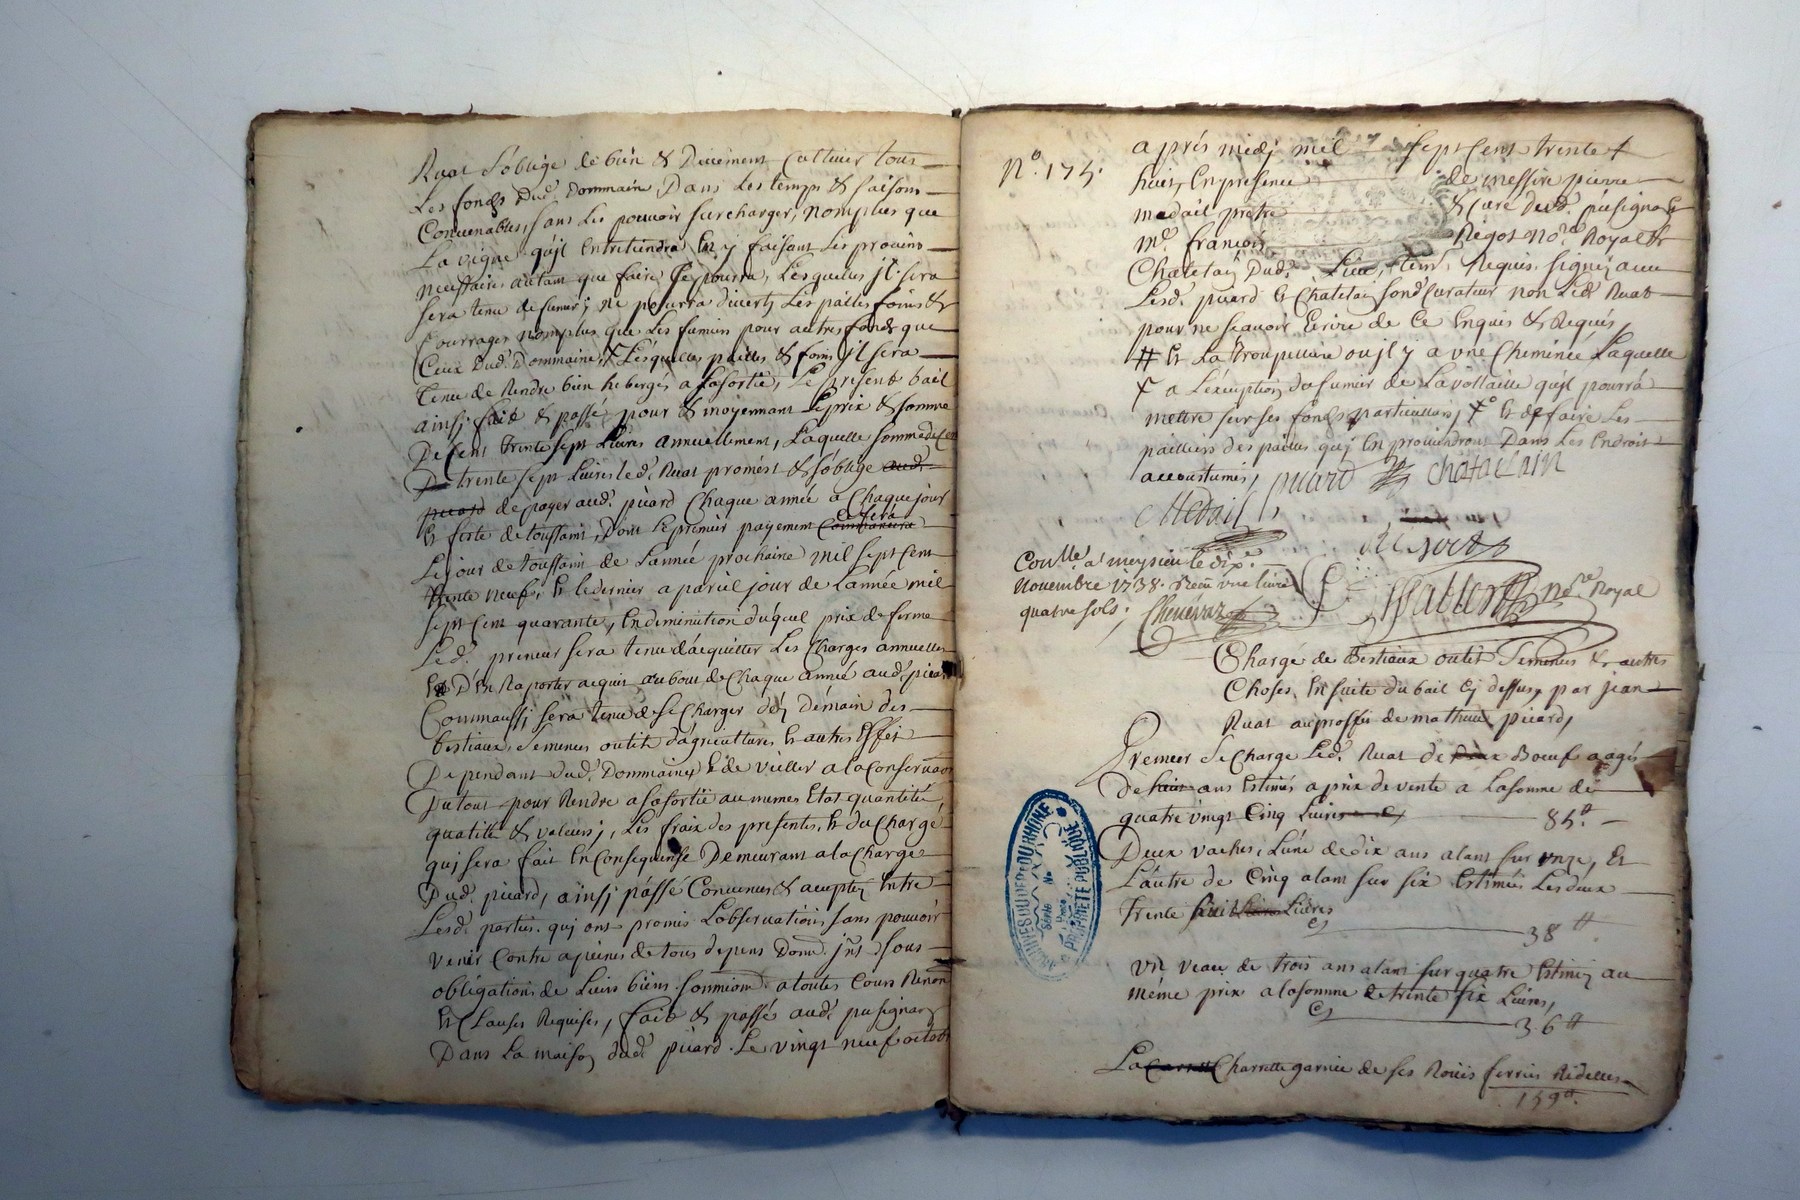 Ruat s'oblige de bien & Duëment Cultiver tous
Les fonds Dud. Dommain Dans Les temps & saisons
Convenables, sans Les pouvoir surcharger, nomplus que
La vigne qu'jl Entretiendra En y faisant Les provins
autant que faire se pourra, Lesquelles jl sera
sera tenu de fumer; ne pourra divertir Les pailles foins &
fourrages nomplus que Les fumiers pour autres fonds que
Ceux Dud. Dommaine, Lesquelles pailles & foins jl sera
Tenu de Rendre bien heberges a sa sortie, Le present bail
ainsj faict & passé pour & moyennant Le prix & somme
De Cent trente sept Livres annuellement, Laquelle somme de Cent
trente sept Livres led. Ruat promest & s'oblige aud.
picard de payer aud. picard Chaque année a Chaque jour
Et feste de toussaint, Dont Le premier payement Commancera sera
Le jour de toussaint de L'année prochaine mil sept Cent
trente neuf, Et le dernier a pareil jour de L'année mil
sept Cent quarante, En diminution duquel prix de ferme
Led. preneur sera tenu d'acquitter Les Charges annuelles
Et D'En Raporter acquit au bout de Chaque année aud. picard
Comm'aussj sera tenu de se Charger
bestiaux, semences outils d'agricultures Et autres Effets
Dependant dud. Dommaines & de vieller a la Conservaon
Du tout pour Rendre a sa sortie au mesmes Etat quantité,
qualitté & valeurs; Les fraix des presentes, Et du Charge
quj sera fait En Consequense Demeurant a la Charge
Dud. picard, ainsj passé Convenus & accepté Entre
Lesd. parties quj ont promis L'observation, sans pouvoir
venir Contre a peines de tous depens Dom. jnts sous
obligations de Leurs biens soumions a toutes Cours Renon
Et Clauses Requises, fait & passé aud. pusignan
Dans La maison dud. picard. Le vingt neuf octobre
N.° 175.
après midj mil sept Cent trente
huit, En presence de messire pierre
medail prêtre & Curé Dud. pusignan Et
m.e francois Regot No.re Royal Et
Chatelain Dud. Lieu, tem. Requis signés avec
Lesd. picard Et Chatelai son Curateur non Led. Ruat
pour ne sçavoir Ecrire de Ce Enquis & Requis,
# Et La troupelliere ou jl y a une Cheminée Laquelle
+ a L'exception du fumier de La vollaille qu'jl pourra
mettre sur ses fonds particulliers, Et de faire Les
pailliers des pailles quj En proviendront Dans Les Endroit
accoustumés, picard Chatelain
Medail,
Regot
Con.lle a meysieu le dix.e
novembre 1738. Reçu une livre
quatre sols; no.re Royal
Charge de Bestiaux outils Semences & autres
Choses, En suite du bail Cj dessus, par jean
Ruat au proffit de mathieu picard,
Premier Se Charge Led. Ruat de Deux Boeufs agés
De huit ans Estimés a prix de vente a La somme de
quatre vingt Cinq Livres 85.tt
Deux vaches, L'une de dix ans alant sur unze, Et
L'autre de Cinq alant sur six Estimées Les deux
trente huit Livres
Cy 38 tt
Un veau de trois ans alant sur quatre Estimé au
même prix a la somme de trente six Livres,
Cy 36 tt
La Charrette garnie de ses Roües ferrées Ridelles
159.tt
ARCHIVES DU DEP.T DU RHÔNE
PROPRIÉTÉ PUBLIQUE